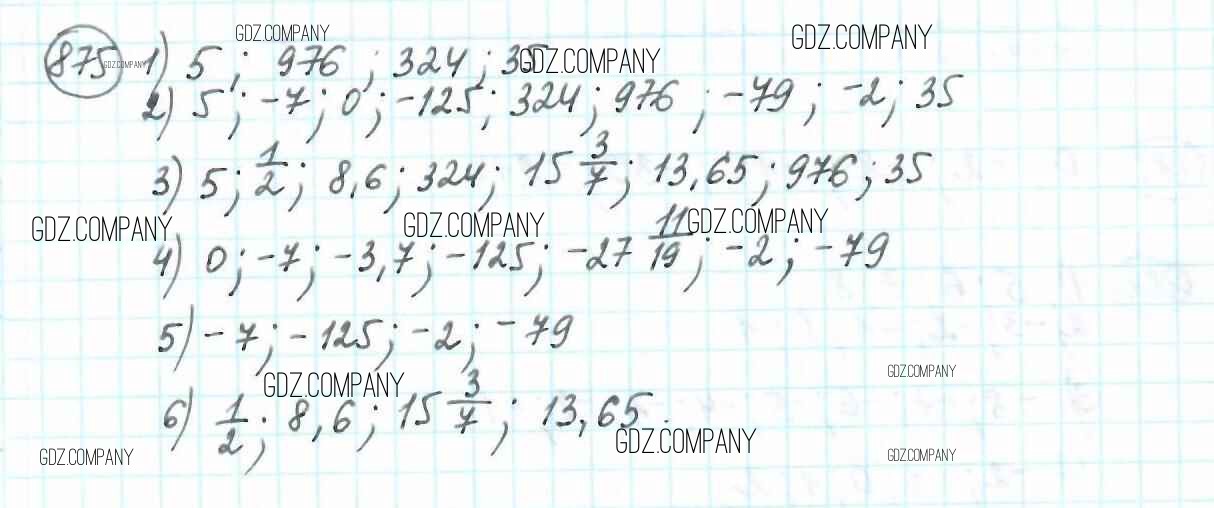 GDZ.COMPANY GDZ.COMPANY
875 GDZ.COMPANY 1) 5 ; 976 ; 324 ; 35 GDZ.COMPANY
2) 5 ; -7 ; 0 ; -125 ; 324 ; 976 ; -79 ; -2 ; 35
3) 5 ; 1/2 ; 8,6 ; 324 ; 15 3/7 ; 13,65 ; 976 ; 35
GDZ.COMPANY GDZ.COMPANY GDZ.COMPANY
4) 0 ; -7 ; -3,7 ; -125 ; -27 11/19 ; -2 ; -79
5) -7 ; -125 ; -2 ; -79
GDZ.COMPANY GDZ.COMPANY
6) 1/2 ; 8,6 ; 15 3/7 ; 13,65 .
GDZ.COMPANY GDZ.COMPANY GDZ.COMPANY